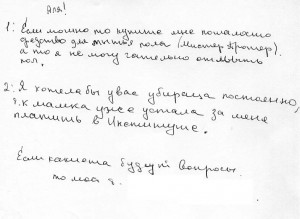 Аля!
1: Если можно то купите мне пожалоста
средство для мытья пола (Мистер Пропер).
а то я не могу тчательно отмывать
пол.
2: Я хотела бы увас убираца постоянно,
т.к мамка уже устала за меня
платить в Институте.
Если какиета будеут вопросы.
то моа